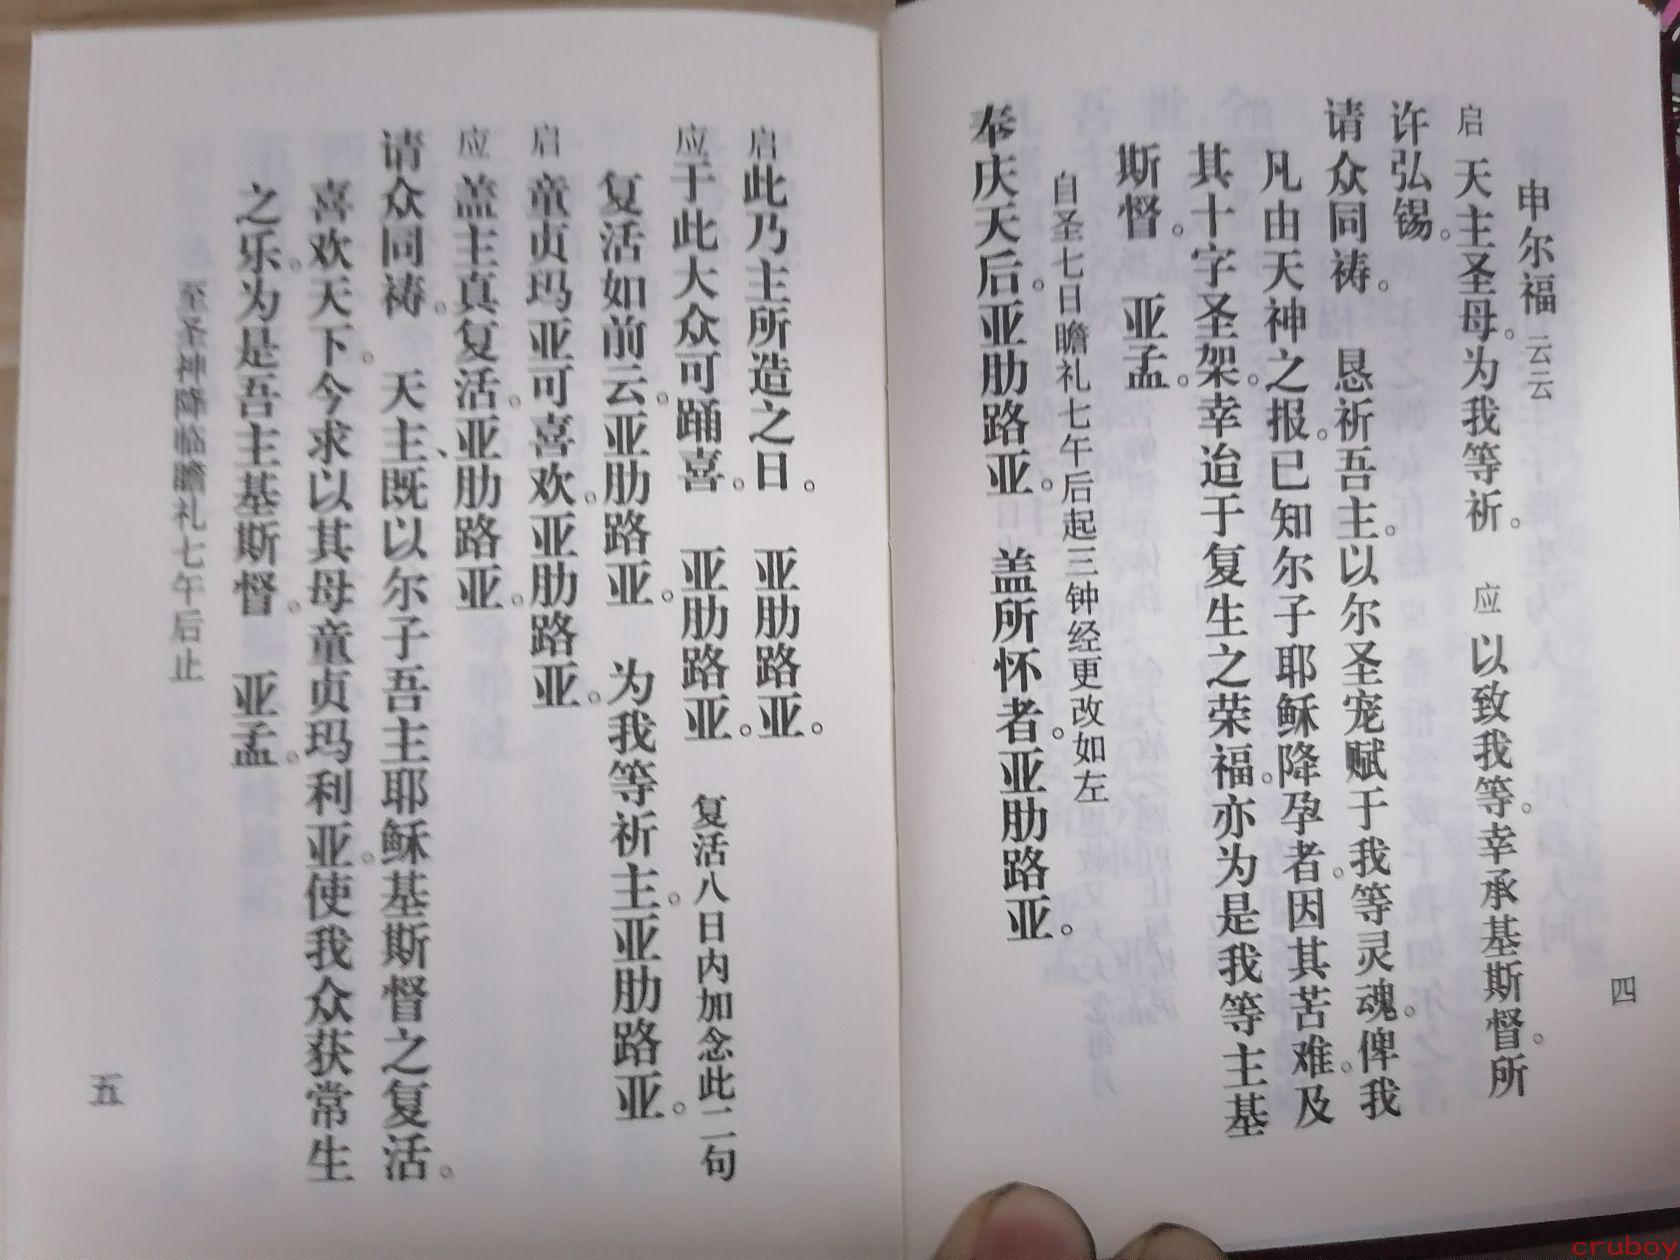 申尔福云云
启 天主圣母。为我等祈。 应 以致我等。幸承基斯督。所
许弘锡。
请众同祷。 恳祈吾主。以尔圣宠赋于我等灵魂。俾我
凡由天神之报。已知尔子耶稣降孕者。因其苦难。及
其十字圣架。幸迨于复生之荣福。亦为是我等主基
斯督。 亚孟。
自圣七日瞻礼七午后起三钟经更改如左
奉庆天后。亚肋路亚。 盖所怀者。亚肋路亚。
四
启此乃主所造之日。 亚肋路亚。
应于此大众可踊喜。 亚肋路亚。 复活八日内加念此二句
复活如前云。亚肋路亚。 为我等祈主。亚肋路亚。
启 童贞玛亚可喜欢。亚肋路亚。
应 盖主真复活。亚肋路亚。
请众同祷。 天主、既以尔子吾主耶稣基斯督之复活。
喜欢天下。今求以其母童贞玛利亚。使我众获常生
之乐。为是吾主基斯督。 亚孟。
至圣神降临瞻礼七午后止
五
cruboy